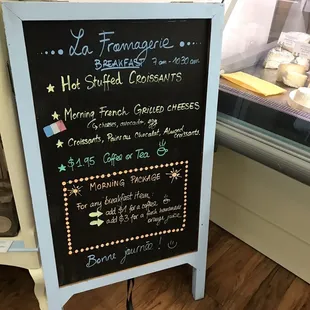 La Fromagerie
BREAKFAST 7am - 10:30 am
Hot Stuffed Croissants
Morning French Grilled cheeses
cheeses, avocado, egg
Croissants, Pain au Chocolat, Almond
croissants.
$1.95 Coffee or Tea
Morning Package
For any breakfast item:
add $1 for a coffee
add $3 for a fresh homemade
orange juice
Bonne journée!